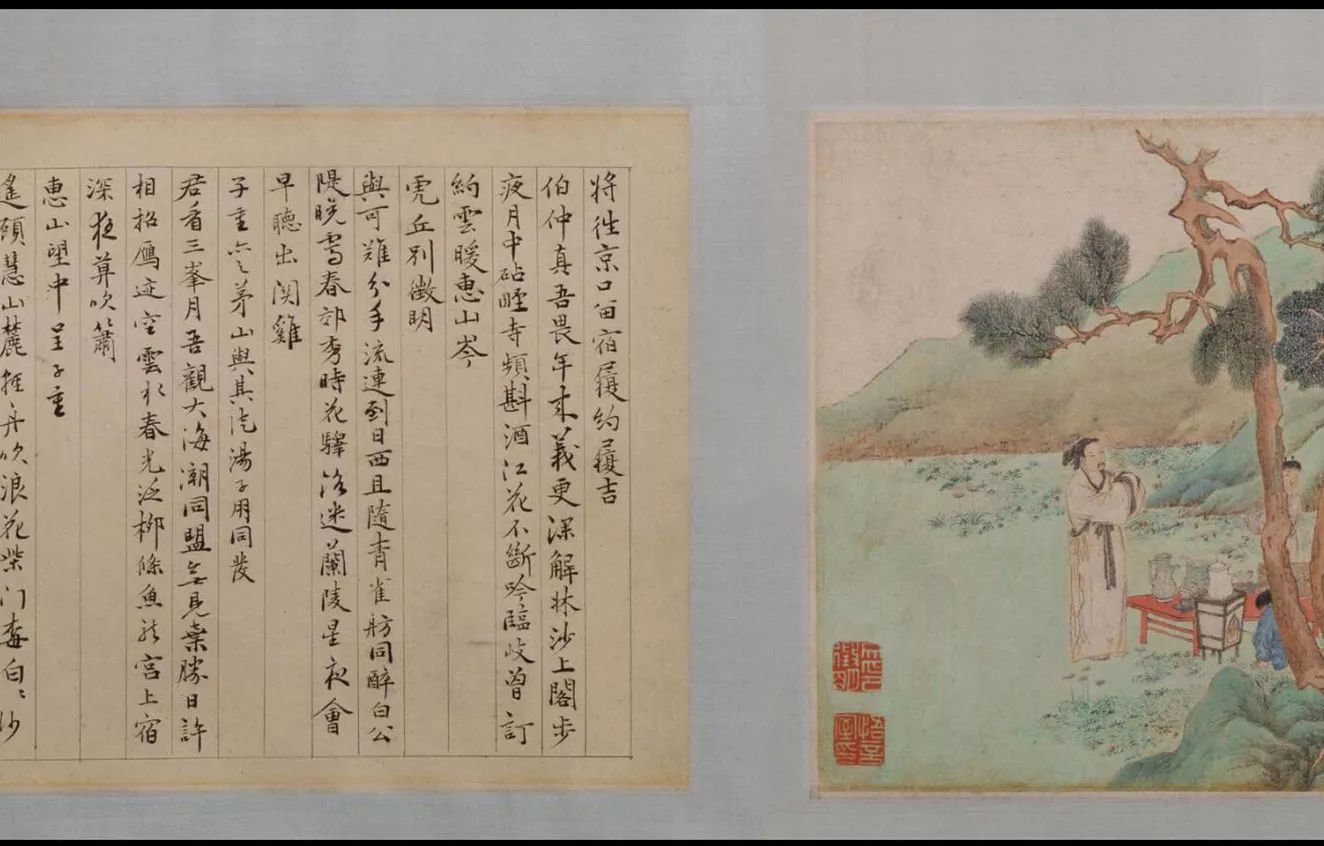 将往京口畱宿履約履吉
伯仲真吾畏年来義更深解牀沙上閣步
夜月中砧暝寺頻斟酒江花不斷吟臨岐曾訂
約雲暖惠山岑
虎丘别徵明
與可難分手流連到日西且隨青雀舫同醉白公
隄曉雪春郊秀時花驛路迷蘭陵星夜會
早聽出関雞
子重六之茅山與其湯子用同發
君看三峯月吾觀大海潮同盟無見棄勝日許
相招鴈迹空雲水春光泛柳條魚龍宫上宿
深夜莫吹簫
惠山望中呈子重
遥頋慧山麓舟吹浪花柴门白〻沙
文徵明印
悟言室印